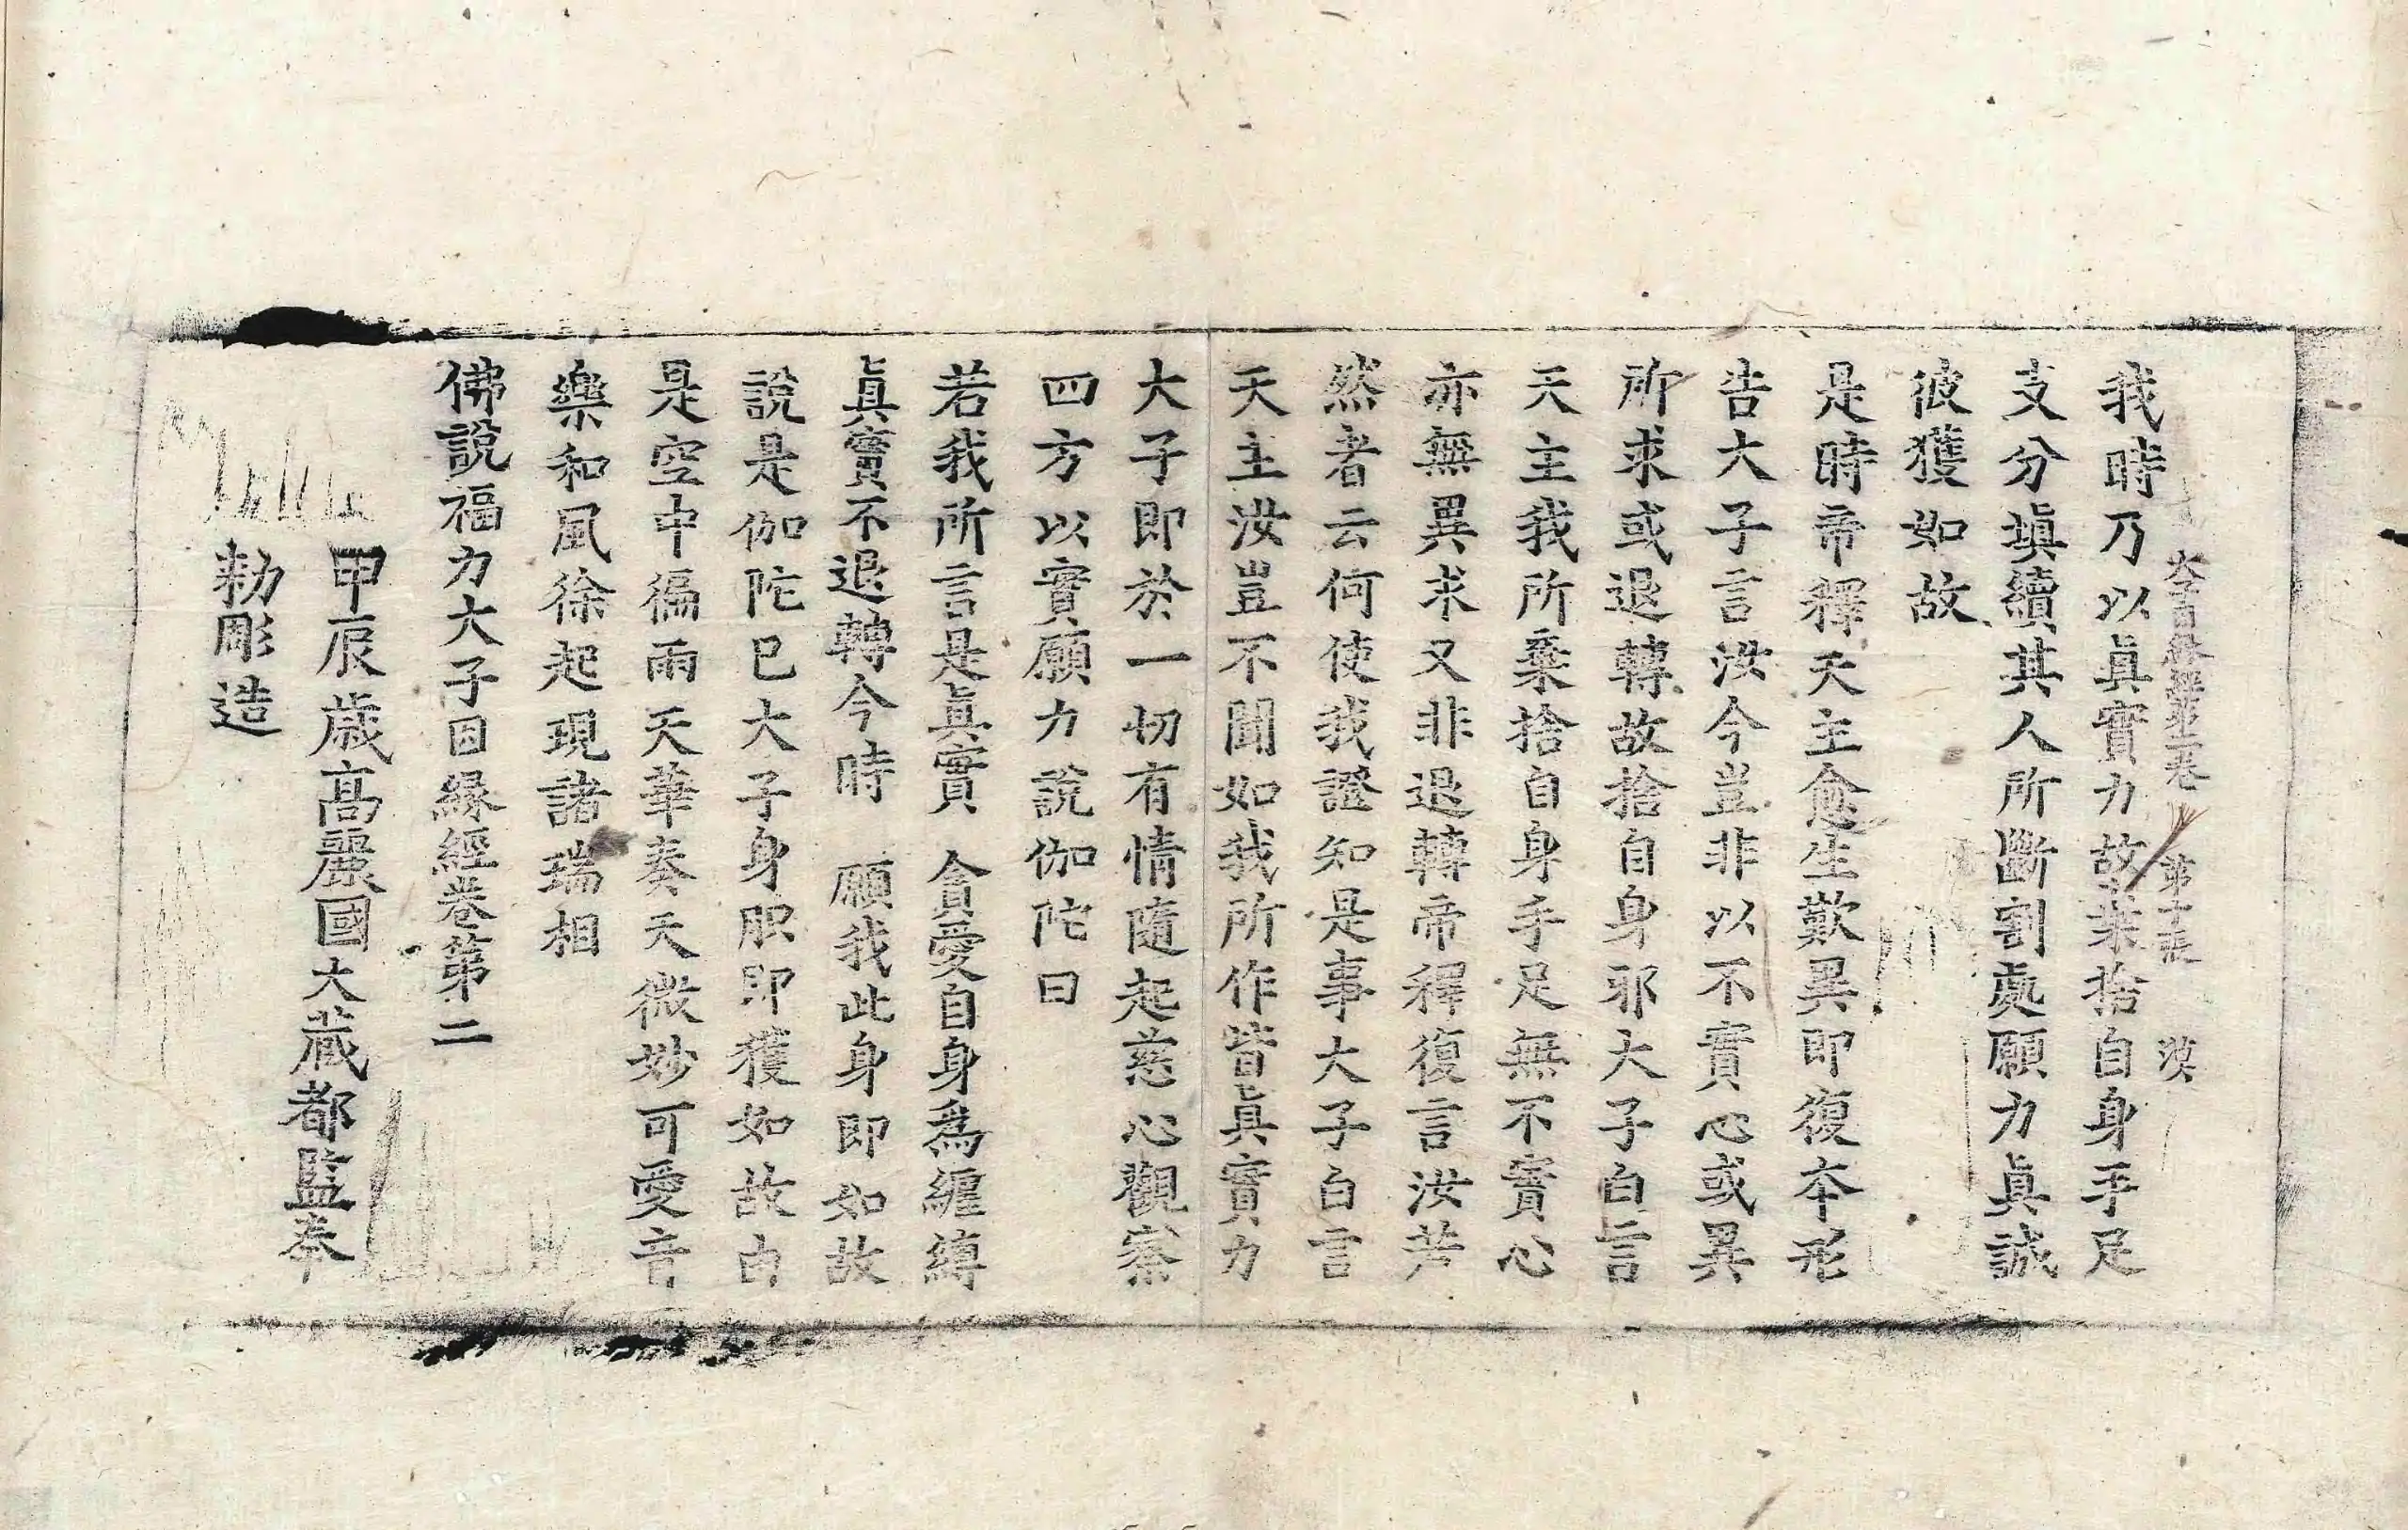 我時乃以眞實力故棄捨自身手足
支分塡續其人所斷割處願力眞誠
彼獲如故
是時帝釋天主愈生歎異即復本形
告大子言汝今豈非以不實心或異
所求或退轉故捨自身邪大子白言
天主我所棄捨自身手足無不實心
亦無異求又非退轉帝釋復言汝若
然者云何使我證知是事大子白言
天主汝豈不聞如我所作皆眞實力
大子即於一切有情隨起慈心觀察
四方以實願力說伽陀曰
若我所言是眞實 貪愛自身爲纏縛
眞實不退轉今時 願我此身即如故
說是伽陀已大子身胑即獲如故由
是空中徧雨天華奏天微妙可愛音
樂和風徐起現諸瑞相
佛說福力大子因緣經卷第二
甲辰歲高麗國大藏都監奉
勑彫造